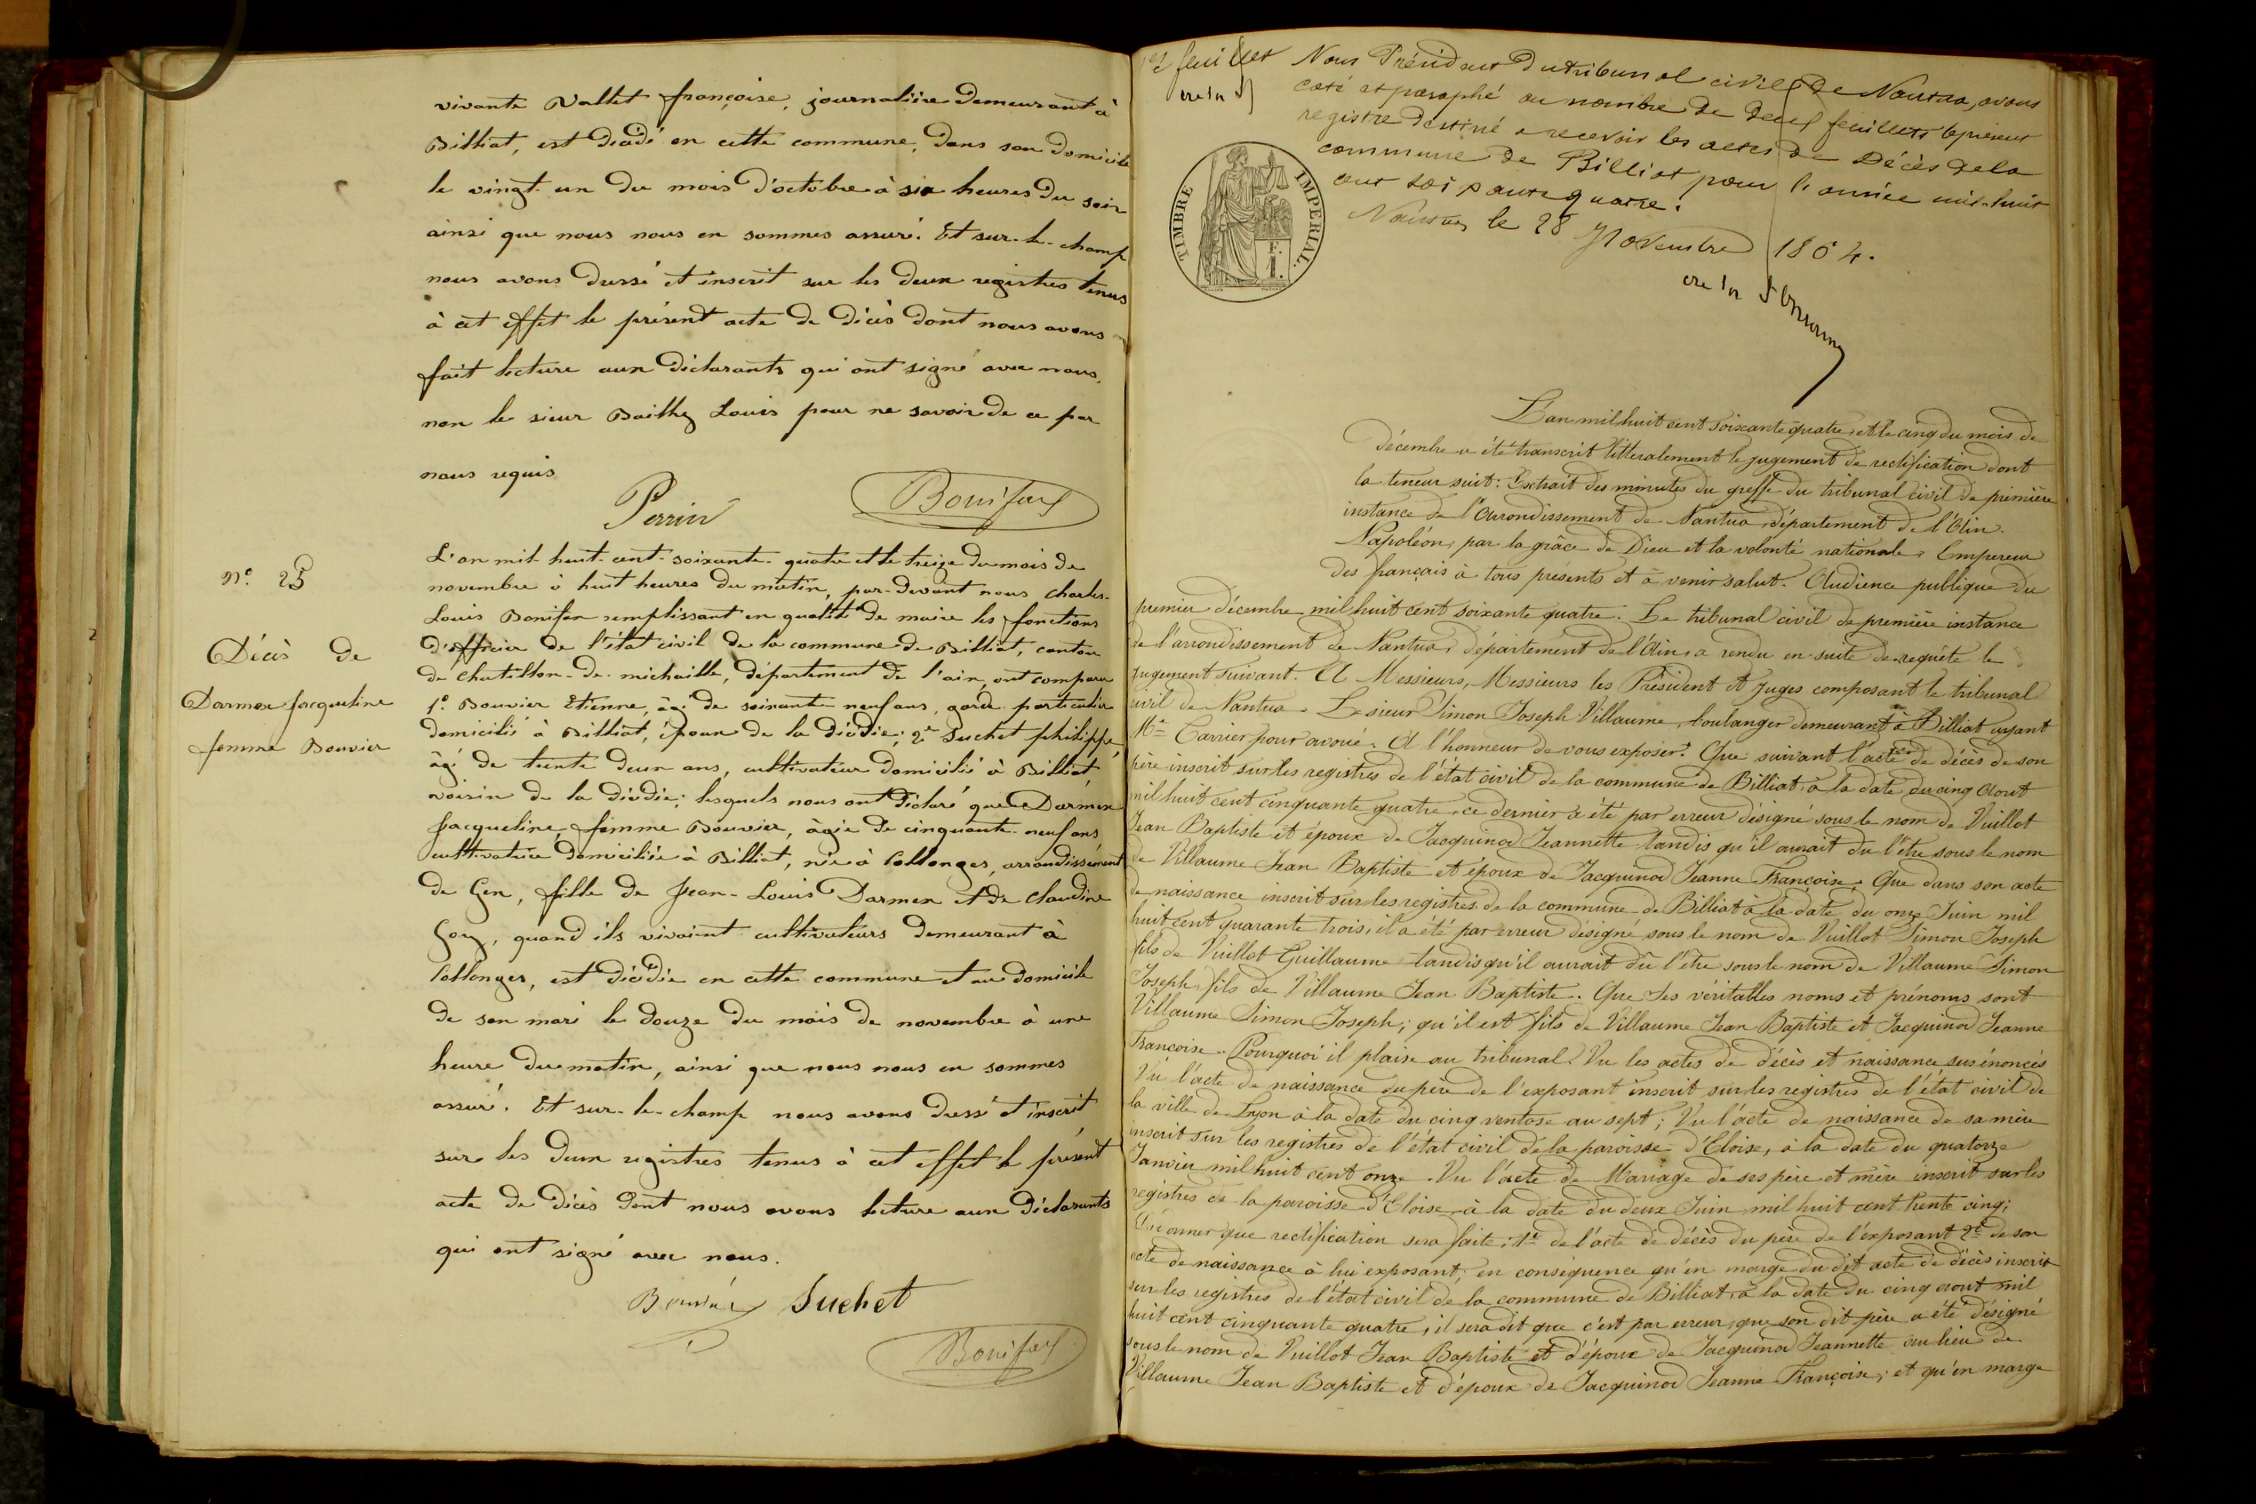 vivante Vallet françoise, journalière demeurant à
Billiat, est décédé en cette commune, dans son domicile
le vingt-un du mois d'octobre à six heures du soir
ainsi que nous nous en sommes assuré. Et sur-le-champ
nous avons dressé et inscrit sur les deux registres tenus
à cet effet le présent acte de décès dont nous avons
fait lecture aux déclarants qui ont signé avec nous,
non le sieur Bailly Louis pour ne savoir de ce par
nous requis
Perrin Bonifax
N.º 25
Décès de
Darmex Jacqueline
femme Bouvier
L'an mil huit-cent-soixante-quatre et le treize du mois de
novembre à huit heures du matin, par-devant nous Charles-
Louis Bonifax remplissant en qualité de maire les fonctions
d'officier de l'état civil de la commune de Billiat, canton
de Chatillon-de-michaille, département de l'ain, ont comparu
1º Bouvier Etienne, âgé de soixante-neuf ans, garde particulier
domicilié à Billiat, époux de la décédée; 2º Suchet philippe,
âgé de trente deux ans, cultivateur domicilié à Billiat
voisin de la décédée; lesquels nous ont déclaré que Darmex
Jacqueline, femme Bouvier, âgée de cinquante-neuf ans
cultivatrice domiciliée à Billiat, née à Collonges, arrondissement
de Gex, fille de Jean-Louis Darmex et de Claudine
quand ils vivaient cultivateurs demeurant à
Collonges, est décédée en cette commune et au domicile
de son mari le douze du mois de novembre à une
heure du matin, ainsi que nous nous en sommes
assuré. Et sur-le-champ nous avons dressé et inscrit
sur les deux registres tenus à cet effet le présent
acte de décès dont nous avons lecture aux déclarants
qui ont signé avec nous.
Bouvier Suchet
Bonifax
1er feuillet
Nous Président du tribunal civil de Nantua, avons
coté et paraphé au nombre de deux feuillets le présent
registre destiné à recevoir les actes de Décès de la
commune de Billiat pour l'année mil-huit
cent soixante quatre.
Nantua, le 28 Novembre 1864.
TIMBRE IMPÉRIAL.
L'an mil huit cent soixante quatre, et le cinq du mois de
Décembre a été transcrit littéralement le jugement de rectification dont
la teneur suit: Extrait des minutes du greffe du tribunal civil de première
instance de l'Arrondissement de Nantua, département de l'Ain.
Napoléon, par la grâce de Dieu et la volonté nationale, Empereur
des français à tous présents et à venir salut. Audience publique du
premier décembre mil huit cent soixante quatre. Le tribunal civil de première instance
de l'arrondissement de Nantua, département de l'Ain, a rendu en suite de requête le
jugement suivant. A Messieurs, Messieurs les Président et Juges composant le tribunal
civil de Nantua. Le sieur Simon Joseph Villaume, boulanger demeurant à Billiat ayant
Me Carrier pour avoué. A l'honneur de vous exposer: Que suivant l'acte de décès de son
père inscrit sur les registres de l'état civil de la commune de Billiat, à la date du cinq Août
mil huit cent cinquante quatre, ce dernier a été par erreur désigné sous le nom de Vuillot
Jean Baptiste et époux de Jacquinod Jeannette tandis qu'il aurait dû l'être sous le nom
de Villaume Jean Baptiste et époux de Jacquinod Jeanne Françoise; Que dans son acte
de naissance inscrit sur les registres de la commune de Billiat à la date du onze Juin mil
huit cent quarante trois, il a été par erreur désigné sous le nom de Vuillot Simon Joseph
fils de Vuillot Guillaume tandis qu'il aurait dû l'être sous le nom de Villaume Simon
Joseph, fils de Villaume Jean Baptiste. Que ses véritables noms et prénoms sont
Villaume Simon Joseph; qu'il est fils de Villaume Jean Baptiste et Jacquinod Jeanne
Françoise. Pourquoi il plaise au tribunal: Vu les actes de décès et naissance sus énoncés
Vu l'acte de naissance du père de l'exposant inscrit sur les registres de l'état civil de
la ville de Lyon à la date du cinq ventose an sept; Vu l'acte de naissance de sa mère
inscrit sur les registres de l'état civil de la paroisse d'Eloise, à la date du quatorze
Janvier mil huit cent onze. Vu l'acte de Mariage de ses père et mère inscrit sur les
registres de la paroisse d'Eloise, à la date du deux Juin mil huit cent trente cinq;
Ordonner que rectification sera faite; 1º de l'acte de décès du père de l'exposant 2º de son
acte de naissance à lui exposant; en conséquence qu'en marge du dit acte de décès inscrit
sur les registres de l'état civil de la commune de Billiat, à la date du cinq août mil
huit cent cinquante quatre, il sera dit que c'est par erreur, que son dit père a été désigné
sous le nom de Vuillot Jean Baptiste et d'époux de Jacquinod Jeannette au lieu de
Villaume Jean Baptiste et d'époux de Jacquinod Jeanne Françoise; et qu'en marge